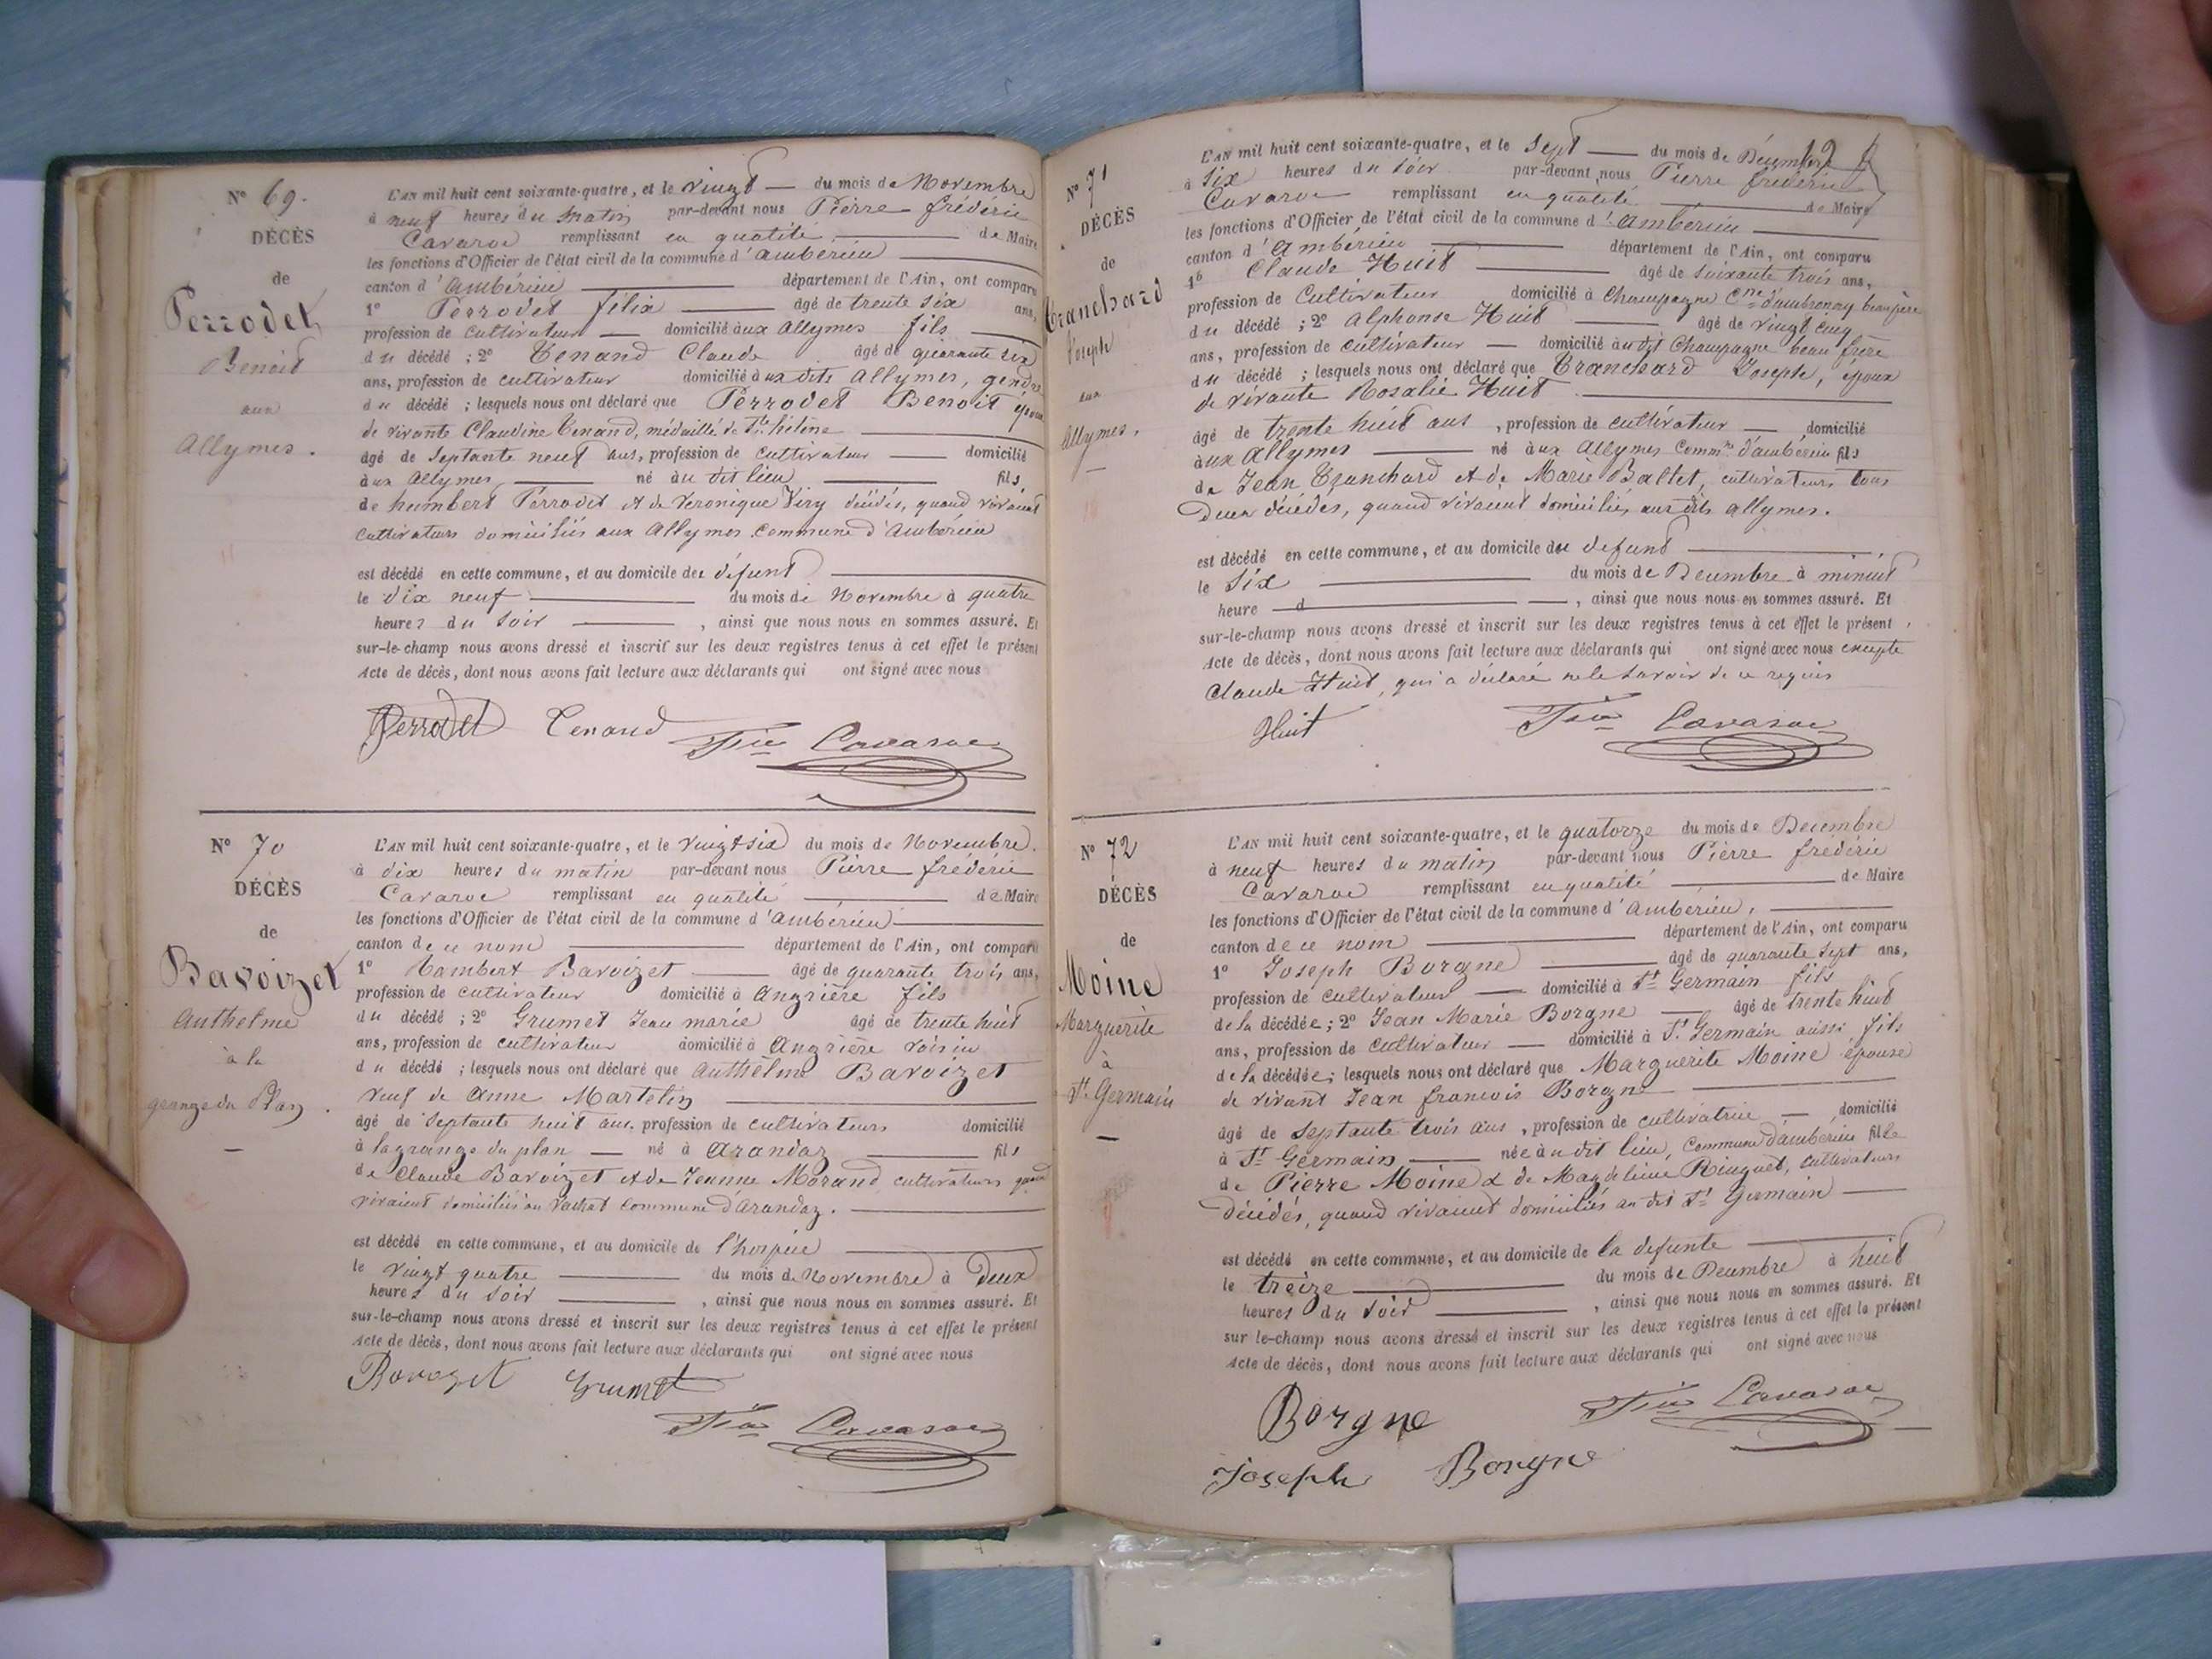 N° 69.
DÉCÈS
de
Perrodet
Benoit
aux
Allymes.
L'AN mil huit cent soixante-quatre, et le vingt — du mois de Novembre
à neuf heures du matin par-devant nous Pierre frédéric
Cavaroc remplissant en qualité — de Maire
les fonctions d'Officier de l'état civil de la commune d'ambérieu —
canton d'ambérieu — département de l'Ain, ont comparu
1° Perrodet félix — âgé de trente six ans,
profession de cultivateur — domicilié aux allymes fils —
du décédé ; 2° Tenand Claude âgé de quarante six
ans, profession de cultivateur domicilié aux dits allymes, gendre
du décédé ; lesquels nous ont déclaré que Perrodet Benoit époux
de vivante Claudine Tenand, médaillé de Ste hélène —
âgé de septante neuf ans, profession de cultivateur — domicilié
aux allymes — né au dit lieu — fils
de humbert Perrodet et de Veronique Viry décédés, quand vivaient
cultivateurs domiciliés aux allymes commune d'ambérieu
est décédé en cette commune, et au domicile de défunt —
le dix neuf — du mois de Novembre à quatre
heures du soir — , ainsi que nous nous en sommes assuré. Et
sur-le-champ nous avons dressé et inscrit sur les deux registres tenus à cet effet le présent
Acte de décès, dont nous avons fait lecture aux déclarants qui ont signé avec nous
Perrodet Tenand Fric Cavaroc
N° 70
DÉCÈS
de
Bavoizet
Anthelme
à la
grange du Plan.
L'AN mil huit cent soixante-quatre, et le vingt six du mois de Novembre.
à dix heures du matin par-devant nous Pierre frédéric
Cavaroc remplissant en qualité — de Maire
les fonctions d'Officier de l'état civil de la commune d'ambérieu —
canton de ce nom — département de l'Ain, ont comparu
1° Lambert Bavoizet — âgé de quarante trois ans,
profession de cultivateur domicilié à angrière fils
du décédé ; 2° Grumet Jean marie âgé de trente huit
ans, profession de cultivateur domicilié à angrière voisin
du décédé ; lesquels nous ont déclaré que anthelme Bavoizet
veuf de anne Martelin —
âgé de septante huit ans, profession de cultivateurs domicilié
à la grange du plan — né à arandaz — fils
de Claude Bavoizet et de Jeanne Morand cultivateurs quand
vivaient domiciliés au vachat commune d'arandaz. —
est décédé en cette commune, et au domicile de l'hospice —
le vingt quatre — du mois de Novembre à deux
heures du soir — , ainsi que nous nous en sommes assuré. Et
sur-le-champ nous avons dressé et inscrit sur les deux registres tenus à cet effet le présent
Acte de décès, dont nous avons fait lecture aux déclarants qui ont signé avec nous
Bavozet Grumet
Fric Cavaroc
N° 71
DÉCÈS
de
Tranchard
Joseph
aux
allymes.
L'AN mil huit cent soixante-quatre, et le sept — du mois de Décembre
à six heures du soir par-devant nous Pierre frédéric
Cavaroc remplissant en qualité — de Maire
les fonctions d'Officier de l'état civil de la commune d'ambérieu —
canton d'ambérieu — département de l'Ain, ont comparu
1° Claude Huit — âgé de soixante trois ans,
profession de cultivateur domicilié à Champagne Cne d'ambronay beau père
du décédé ; 2° alphonse Huit — âgé de vingt cinq
ans, profession de cultivateur — domicilié au dit Champagne beau frère
du décédé ; lesquels nous ont déclaré que Tranchard Joseph, époux
de vivante Rosalie Huit —
âgé de trente huit ans , profession de cultivateur — domicilié
aux allymes — né aux allymes Commne d'ambérieu fils
de Jean Tranchard et de Marie Baltet, cultivateurs tous
deux décédés, quand vivaient domiciliés aux dits allymes.
est décédé en cette commune, et au domicile du defunt —
le six — du mois de Décembre à minuit
heure d — , ainsi que nous nous en sommes assuré. Et
sur-le-champ nous avons dressé et inscrit sur les deux registres tenus à cet effet le présent
Acte de décès, dont nous avons fait lecture aux déclarants qui ont signé avec nous excepté
Claude Huit, qui a déclaré ne le savoir de ce requis
Huit Fric Cavaroc
N° 72
DÉCÈS
de
Moine
Marguerite
à
St Germain
L'AN mil huit cent soixante-quatre, et le quatorze du mois de Décembre
à neuf heures du matin par-devant nous Pierre frédéric
Cavaroc remplissant en qualité — de Maire
les fonctions d'Officier de l'état civil de la commune d'ambérieu, —
canton de ce nom — département de l'Ain, ont comparu
1° Joseph Borgne — âgé de quarante sept ans,
profession de cultivateur — domicilié à St Germain fils
de la décédée ; 2° Jean Marie Borgne — âgé de trente huit
ans, profession de cultivateur — domicilié à St Germain aussi fils
de la décédée ; lesquels nous ont déclaré que Marguerite Moine épouse
de vivant Jean francois Borgne —
âgé de septante trois ans , profession de cultivatrice — domicilié
à St Germain — née au dit lieu, Commune d'ambérieu fille
de Pierre Moine & de Magdeleine Ringuet, cultivateurs
décédés, quand vivaient domiciliés au dit St Germain —
est décédé en cette commune, et au domicile de la defunte —
le treize — du mois de Décembre à huit
heures du soir — , ainsi que nous nous en sommes assuré. Et
sur le-champ nous avons dressé et inscrit sur les deux registres tenus à cet effet le présent
Acte de décès, dont nous avons fait lecture aux déclarants qui ont signé avec nous
Borgne Fric Cavaroc
Joseph Borgne